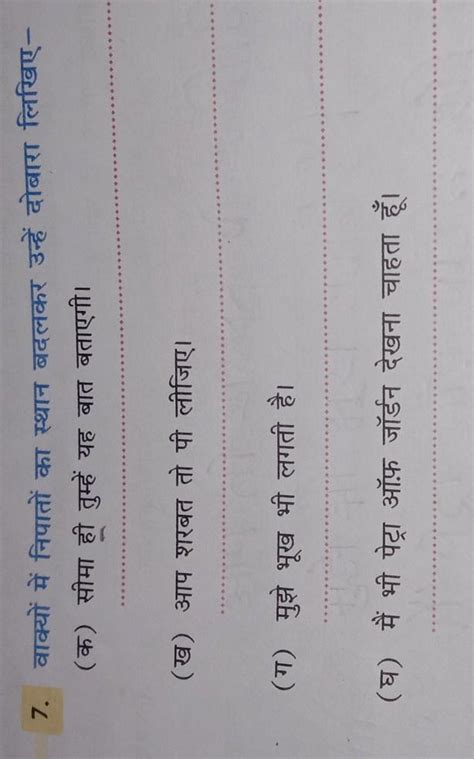 7. वाक्यों में निपातों का स्थान बदलकर उन्हें दोबारा लिखिए–
(क) सीमा ही तुम्हें यह बात बताएगी।
(ख) आप शरबत तो पी लीजिए।
(ग) मुझे भूख भी लगती है।
(घ) मैं भी पेट्रा ऑफ़ जॉर्डन देखना चाहता हूँ।